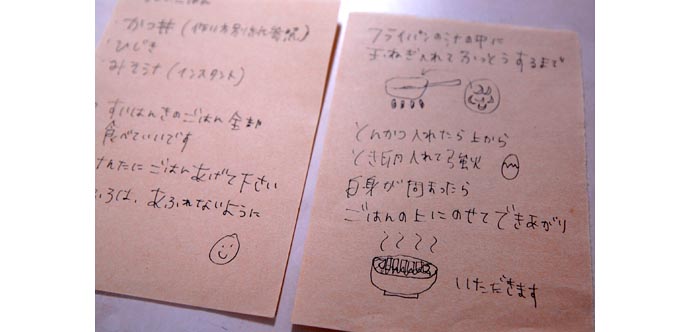 ・かつ丼(作り方別紙参照)
・ひじき
・みそ汁(インスタント)
すいはんきのごはん全部
食べていいです
けんたにごはんあげて下さい
ふろは、あふれないように
フライパンの汁の中に
玉ねぎ入れてふっとうするまで
とんかつ入れたら上から
とき卵入れて強火
白身が固まったら
ごはんの上にのせてできあがり
いただきます